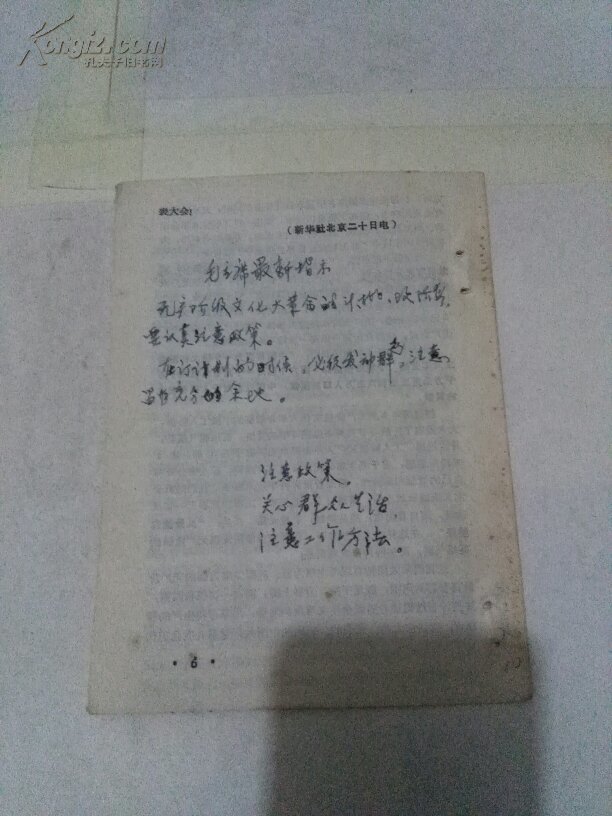 Kongfz.com
孔夫子旧书网
表大会!
(新华社北京二十日电)
毛主席最新指示
无产阶级文化大革命的
要认真注意政策。
在订计划的时候,必须发动群众,注意
留有充分的余地。
注意政策。
关心群众生活,
注意工作方法。
·6·